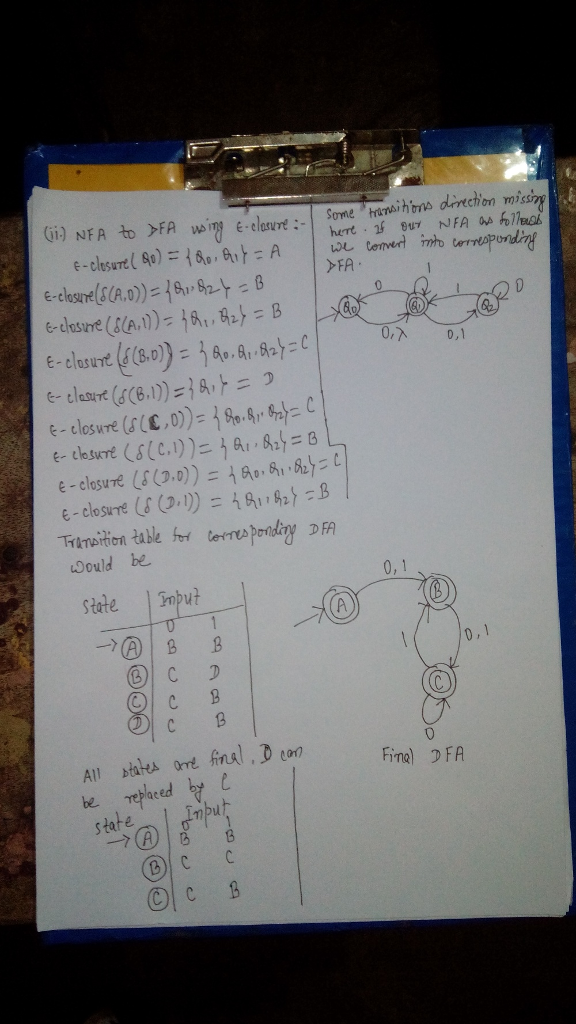 (ii) NFA to DFA using ε-closure :-
ε-closure(Q0) = {Q0, Q1} = A
ε-closure(δ(A,0)) = {Q1, Q2} = B
ε-closure(δ(A,1)) = {Q1, Q2} = B
ε-closure(δ(B,0)) = {Q0, Q1, Q2} = C
ε-closure(δ(B,1)) = {Q1} = D
ε-closure(δ(C,0)) = {Q0, Q1, Q2} = C
ε-closure(δ(C,1)) = {Q1, Q2} = B
ε-closure(δ(D,0)) = {Q0, Q1, Q2} = C
ε-closure(δ(D,1)) = {Q1, Q2} = B
some transitions direction missing
here. If our NFA as follows
we convert into corresponding
DFA.
0 1 1 0
Q0 Q2
0,λ 0,1
Transition table for corresponding DFA
would be
State Input
0 1
→ A B B
B C D
C C B
D C B
0,1
A B
1 0,1
C
0
Final DFA
All states are final, D can
be replaced by C
state Input
0 1
→ A B B
B C C
C C B